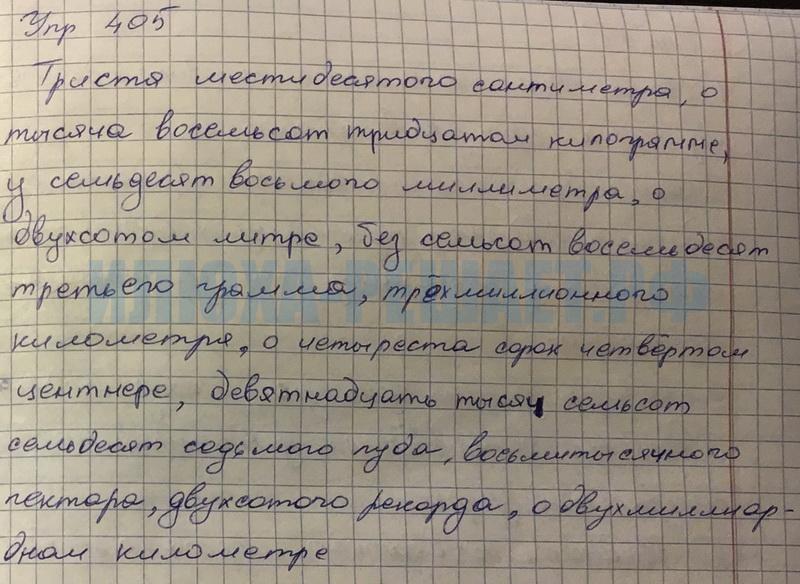 Упр 405
Триста шестидесятого сантиметра, о
тысяча восемьсот тридцатом килограмме,
у семьдесят восьмого миллиметра, о
двухсотом литре, без семьсот восемьдесят
ИЛЮХА-РЕШАЕТ.РФ
третьего грамма, трёхмиллионного
километра, о четыреста сорок четвёртом
центнере, девятнадцать тысяч семьсот
семьдесят седьмого пуда, восьмитысячного
гектара, двухсотого рекорда, о двухмиллиар-
дном километре